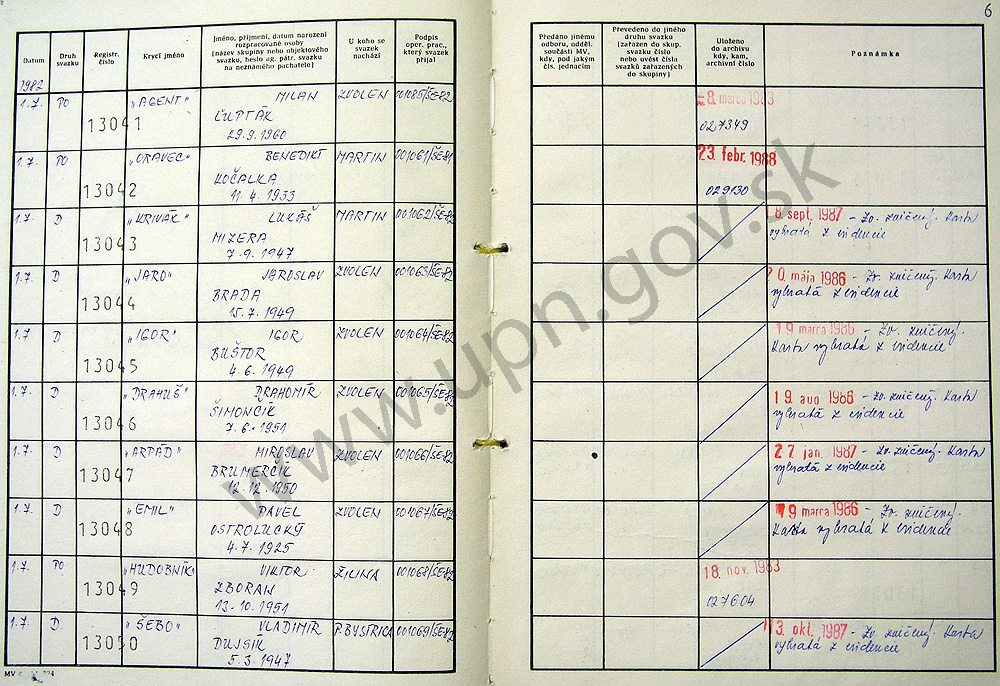 6
Datum
Druh svazku
Registr. číslo
Krycí jméno
Jméno, příjmení, datum narození
rozpracované osoby
(název skupiny nebo objektového
svazku, heslo ag. pátr. svazku
na neznámého pachatele)
U koho se
svazek
nachází
Podpis
oper. prac.,
který svazek
přijal
Předáno jinému
odboru, odděl.
součásti MV,
kdy, pod jakým
čís. jednacím
Převedeno do jiného
druhu svazku
(zařazen do skup.
svazku číslo
nebo uvést čísla
svazků zařazených
do skupiny)
Uloženo
do archivu
kdy, kam,
archivní číslo
Poznámka
1982
1.7. PO 13041 "AGENT" MILAN ZVOLEN 001085/ŠE-82 8. marca 1983
ĽUPTÁK 027349
29.9.1960
1.7. PO 13042 "ORAVEC" BENEDIKT MARTIN 001061/ŠE-81 23. febr. 1988
KOČALKA 029130
11.4.1933
1.7. D 13043 "KRIVÁK" LUKÁŠ MARTIN 001062/ŠE-82 8 sept. 1987 – Zv. zničený. Karta
MIZERA vybratá z evidencie
7.9.1947
1.7. D 13044 "JARO" JAROSLAV ZVOLEN 001063/ŠE-82 20. mája 1986 – Zv. zničený. Karta
BRADA vybratá z evidencie
15.7.1949
1.7. D 13045 "IGOR" IGOR ZVOLEN 001064/ŠE-82 19 marca 1986 – Zv. zničený.
BUŠTOR Karta vybratá z evidencie
4.6.1949
1.7. D 13046 "DRAHUŠ" DRAHOMÍR ZVOLEN 001065/ŠE-82 19. aug 1986 – Zv. zničený. Karta
ŠIMONČÍK vybratá z evidencie
7.6.1951
1.7. D 13047 "ARPÁD" MIROSLAV ZVOLEN 001066/ŠE-82 27 jan. 1987 – Zv. zničený. Karta
BRUMERČÍK vybratá z evidencie
12.12.1950
1.7. D 13048 "EMIL" PAVEL ZVOLEN 001067/ŠE-82 19 marca 1986 – Zv. zničený.
OSTROLUCKÝ Karta vybratá z evidencie
4.7.1925
1.7. PO 13049 "HUDOBNÍK" VIKTOR ŽILINA 001068/ŠE-82 18. nov. 1983
ZBORAN 027604
13.10.1951
1.7. D 13050 "ŠEBO" VLADIMÍR P. BYSTRICA 001069/ŠE-82 13. okt. 1987 – Zv. zničený. Karta
DUJSÍK vybratá z evidencie
5.3.1947
www.upn.gov.sk